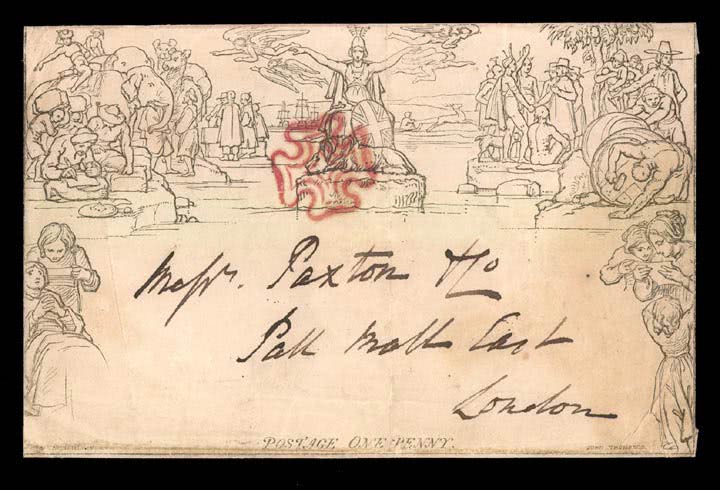 Messrs. Paxton & Co
Pall Mall East
London
POSTAGE ONE PENNY.
JOHN THOMPSON